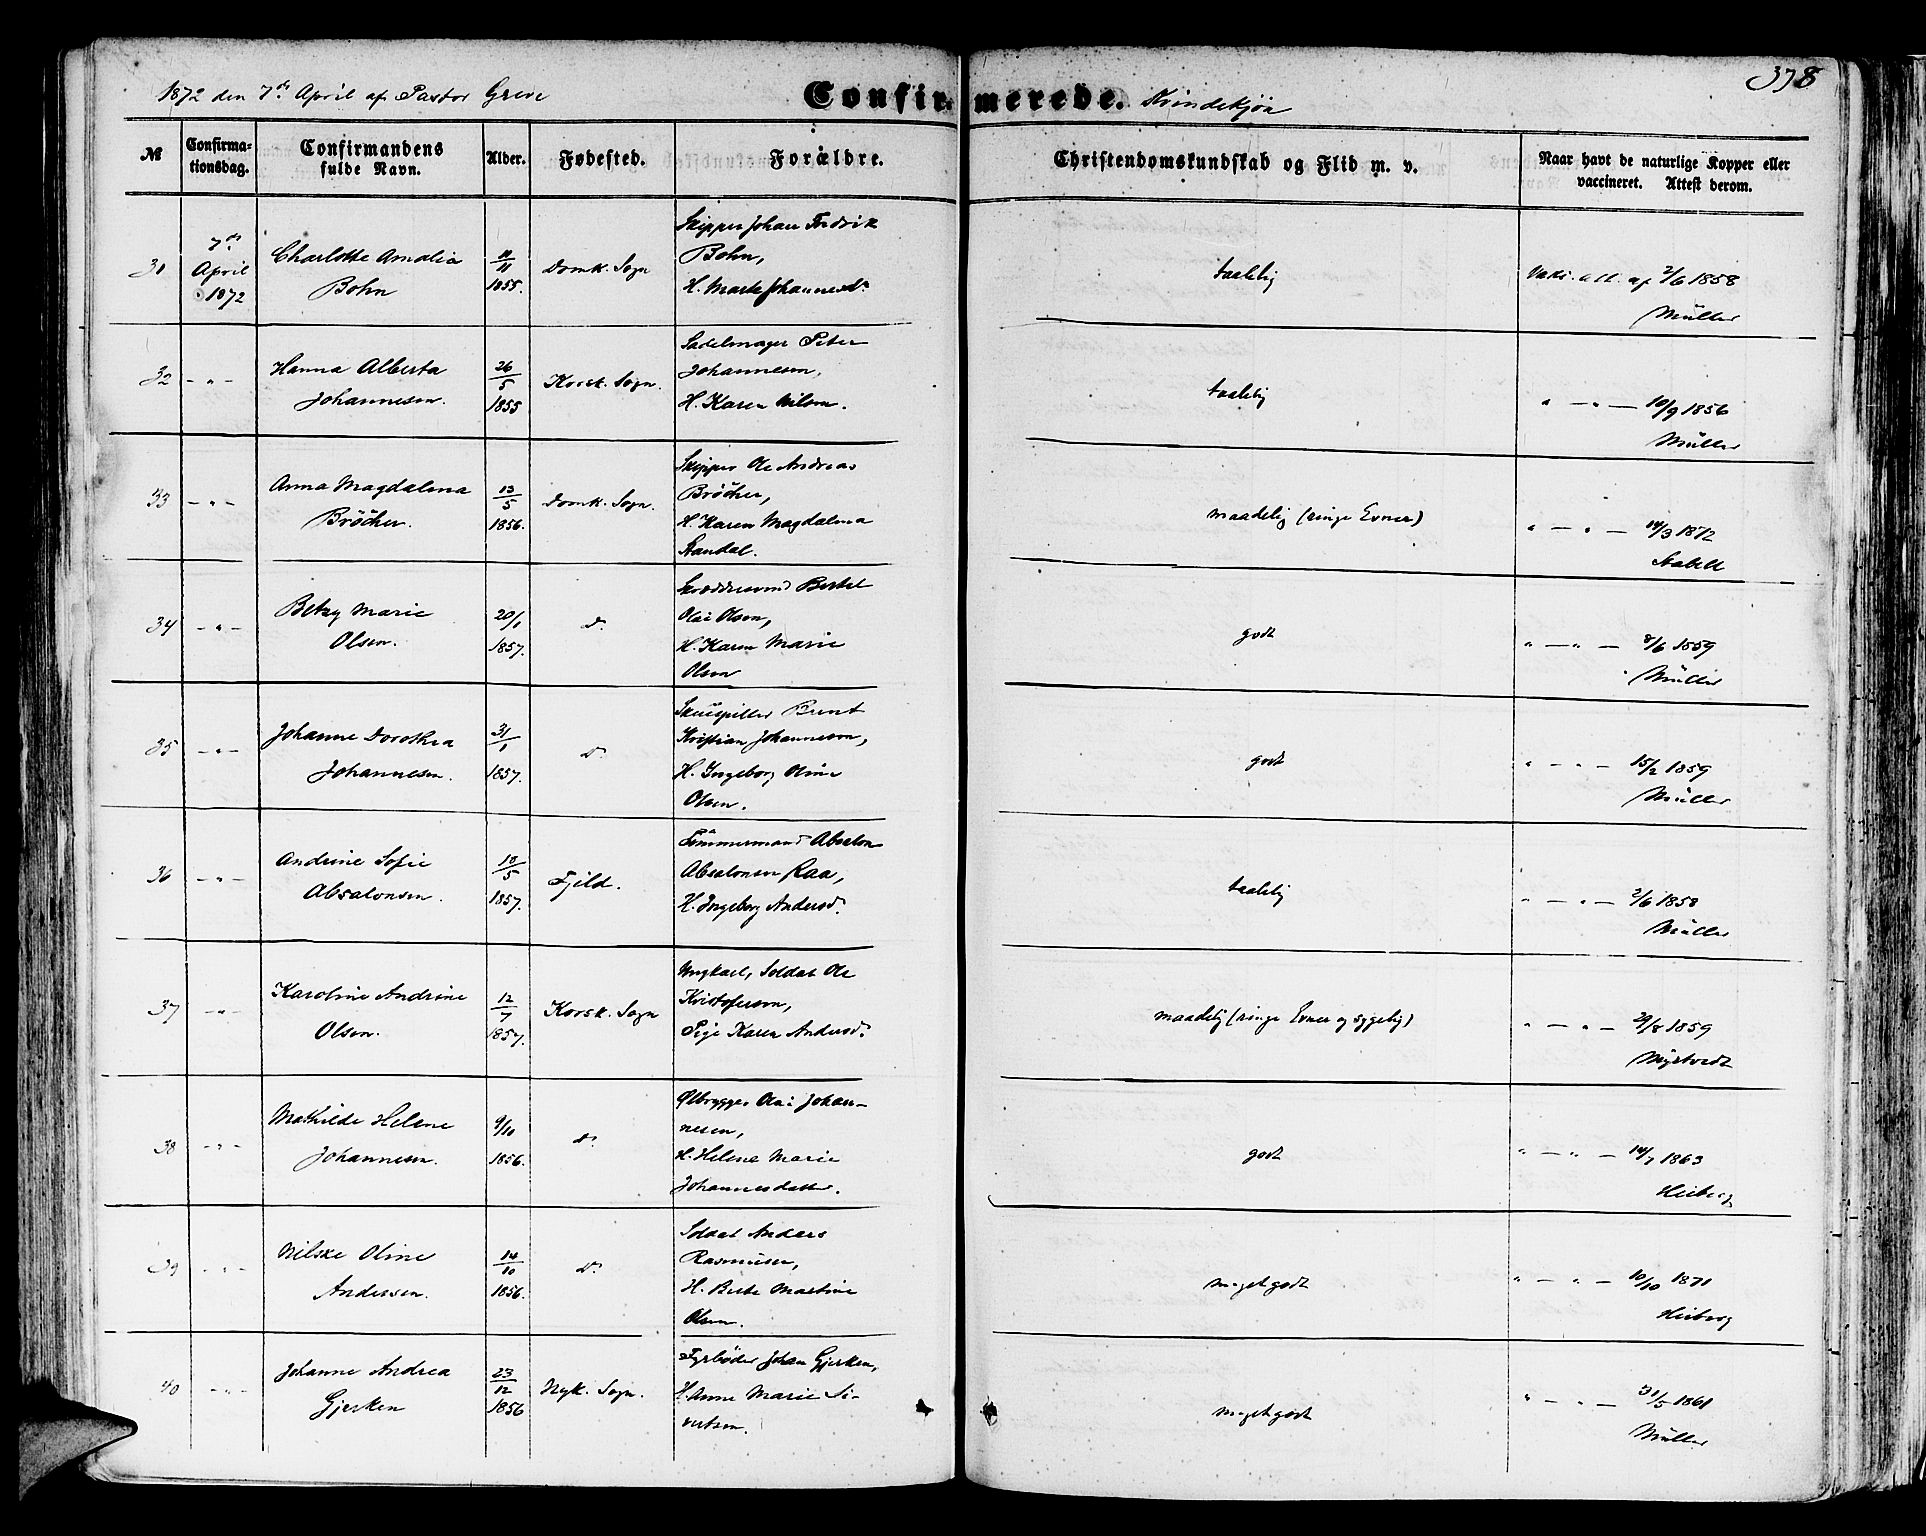 1872 den 7de April af Pastor Greve
Confirmerede.
Kvindekjøn
378
№
Confirma-
tionsdag.
Confirmandens
fulde Navn.
Alder.
Fødested.
Forældre.
Christendomskundskab og Flid m. v.
Naar havt de naturlige Kopper eller
vaccineret. Attest derom.
31
7de
April
1872
Charlotte Amalia
Bohn
11/11
1855.
Domk. Sogn
Skipper Johan Fredrik
Bohn,
H. Marte Johannesd.
taalelig
Vacs. att. af 2/6 1858
Müller
32 - " -
Hanna Alberta
Johannesen.
26/5
1855
Korsk. Sogn.
Sadelmager Peter
Johannesen,
H. Karen Nilsen.
taalelig
" - " - 10/9 1856
Müller
33 - " -
Anna Magdalena
Bröcher.
13/5
1856.
Domk. Sogn.
Skipper Ole Andreas
Bröcher,
H. Karen Magdalena
Standal.
maadelig (ringe Evner)
" - " - 14/3 1872
Stabell
34 - " -
Betzy Marie
Olsen.
20/1
1857.
do
Skræddersvend Bertel
Olai Olsen,
H. Karen Marie
Olsen
godt
" - " - 8/6 1859
Müller
35 - " -
Johanne Dorothea
Johannesen.
31/1
1857.
do
Skuespiller Bernt
Kristian Johannesen,
H. Ingeborg Oline
Olsen.
godt
" - " - 15/2 1859
Müller
36 - " -
Andrine Sofie
Absalonsen.
10/5
1857.
Fjeld.
Tömmermand Absalon
Absalonsen Raa,
H. Ingeborg Andersd.
taalelig
" - " - 2/6 1858
Müller
37 - " -
Karoline Andrine
Olsen.
12/7
1857.
Korsk. Sogn
Ungkarl, Soldat Ole
Kristofersen,
Pige Karen Andersd.
maadelig (ringe Evner og sygelig)
" - " - 29/8 1859
38 - " -
Mathilde Helene
Johannesen.
9/10
1856.
do
Ølbrygger Olai Johan-
nesen,
H. Helene Marie
Johannesdatter.
godt
" - " - 14/7 1863
Heiberg
39 - " -
Nilske Oline
Andersen.
14/10
1856.
do
Soldat Anders
Rasmusen,
H. Berte Martine
Olsen.
meget godt
" - " - 10/10 1871
Heiberg
40 - " -
Johanne Andrea
Gjerken
23/12
1856
Nyk. Sogn.
Fyrbøder Johan Gjerken,
H. Anne Marie Si-
vertsen.
meget godt
" - " - 31/5 1861
Müller